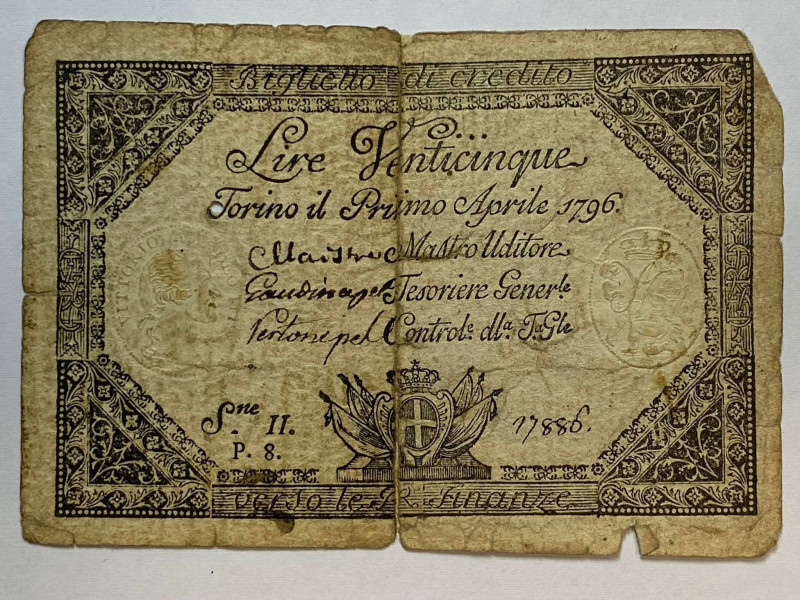 Biglietto di credito
Lire Venticinque
Torino il Primo Aprile 1796.
Mastro Uditore
Gaudina pel Tesoriere Gener.le
pel Control.e dl.a T.a Gle
S.ne II.
P. 8.
17886.
verso le R. Finanze
VITTORIO